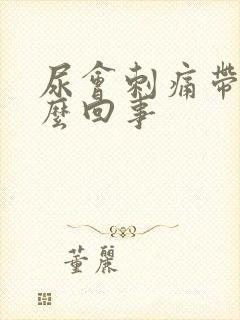 尿會刺痛帶
麼回事
董麗